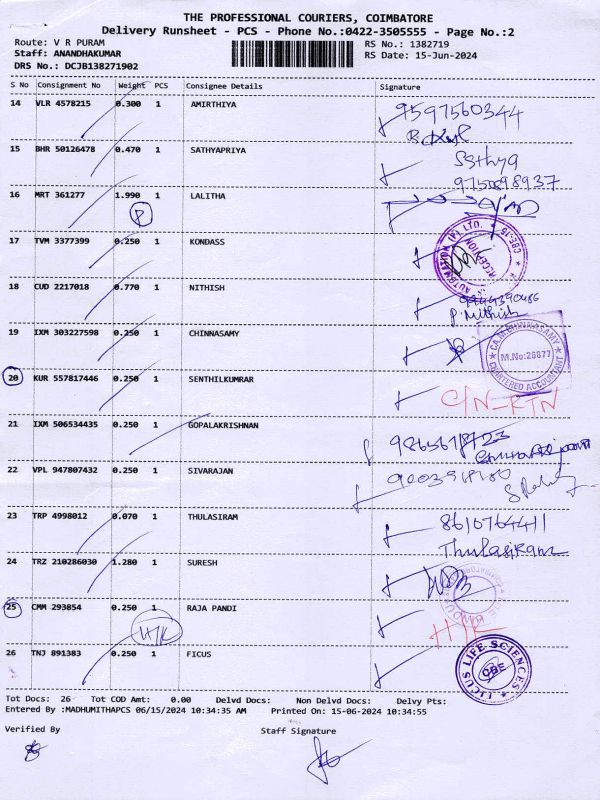 THE PROFESSIONAL COURIERS, COIMBATORE
Delivery Runsheet - PCS - Phone No.:0422-3505555 - Page No.:2
Route: V R PURAM
RS No.: 1382719
Staff: ANANDHAKUMAR
RS Date: 15-Jun-2024
DRS No.: DCJB138271902
S No Consignment No Weight PCS Consignee Details Signature
14 VLR 4578215 0.300 1 AMIRTHIYA 9597560344
15 BHR 50126478 0.470 1 SATHYAPRIYA Ssthya
9750898937
16 MRT 361277 1.990 1 LALITHA
P
17 TVM 3377399 0.250 1 KONDASS
AUTOMATION (P) LTD. * CBE-15 *
18 CUD 2217018 0.770 1 NITHISH
P. Nithish
19 IXM 303227598 0.250 1 CHINNASAMY
CHINNASAMY
M.No:26877
CHARTERED ACCOUNTANT
20 KUR 557817446 0.250 1 SENTHILKUMRAR C/N-RTN
21 IXM 506534435 0.250 1 GOPALAKRISHNAN
22 VPL 947807432 0.250 1 SIVARAJAN
23 TRP 4998012 0.070 1 THULASIRAM 8610764411
Thulasiram
24 TRZ 210286030 1.280 1 SURESH
25 CMM 293854 0.250 1 RAJA PANDI H/K
H/K
26 TNJ 891383 0.250 1 FICUS
FICUS LIFE SCIENCES
CBE
Tot Docs: 26 Tot COD Amt: 0.00 Delvd Docs: Non Delvd Docs: Delvy Pts:
Entered By :MADHUMITHAPCS 06/15/2024 10:34:35 AM Printed On: 15-06-2024 10:34:55
Verified By Staff Signature